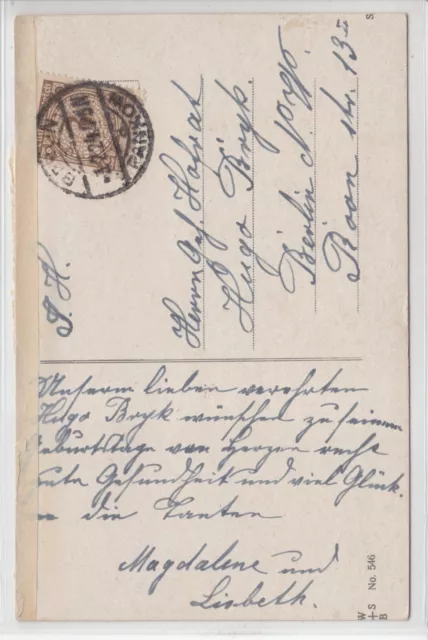 S. H.
Herrn Geh. Hofrat
Hugo Bryk.
Berlin
Roon str. 13 I
Unserm lieben verehrten
Hugo Bryk wünschen zu seinem
Geburtstage von Herzen recht
gute Gesundheit und viel Glück.
die Tanten
Magdalene und
Lisbeth.
W + S B No. 546
S